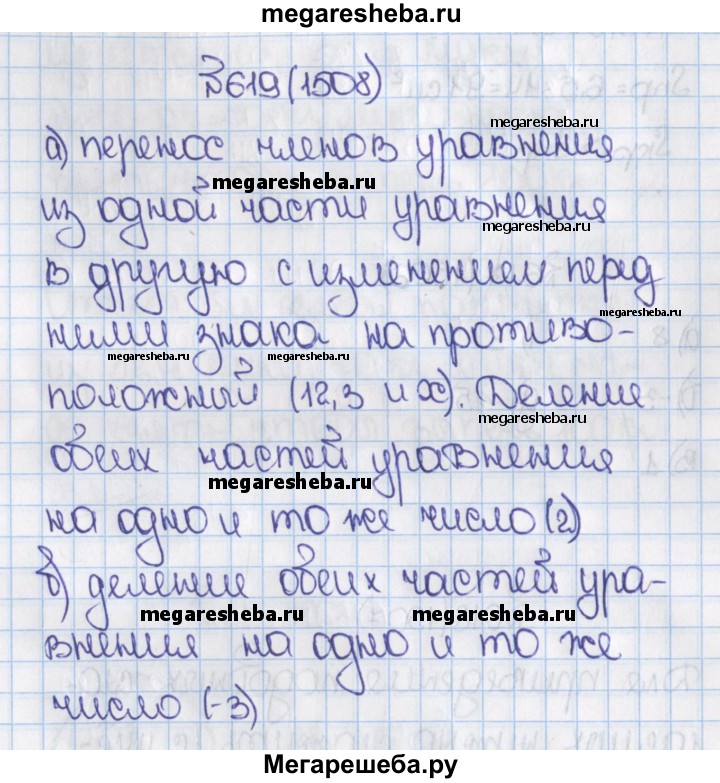 megaresheba.ru
№619(1508)
megaresheba.ru
а) перенос членов уравнения
megaresheba.ru
из одной части уравнения
megaresheba.ru
в другую с изменением перед
megaresheba.ru
ними знака на противо-
megaresheba.ru megaresheba.ru megaresheba.ru
положный (12,3 и х). Деление
megaresheba.ru
обеих частей уравнения
megaresheba.ru
на одно и то же число (2)
б) деление обеих частей ура-
megaresheba.ru megaresheba.ru
внения на одно и то же
число (-3)
Мегарешеба.ру